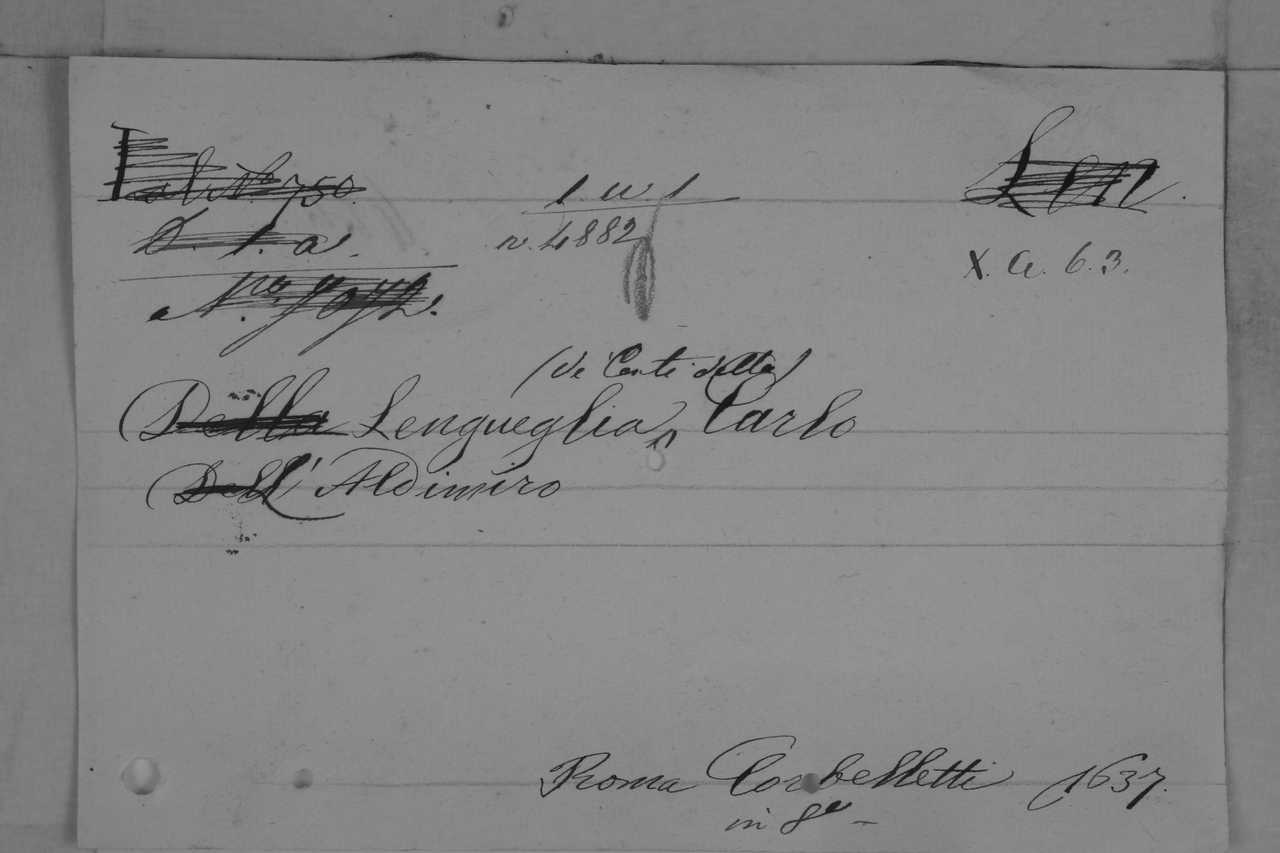 al N.º 750.
1. w. 1
Len
S. 1. a.
n. 4882
X. a. 6. 3.
N.ro
(de Conti della)
Della Lengueglia, Carlo
Dell' Aldimiro
Roma Corbelletti 1637.
in 8º –